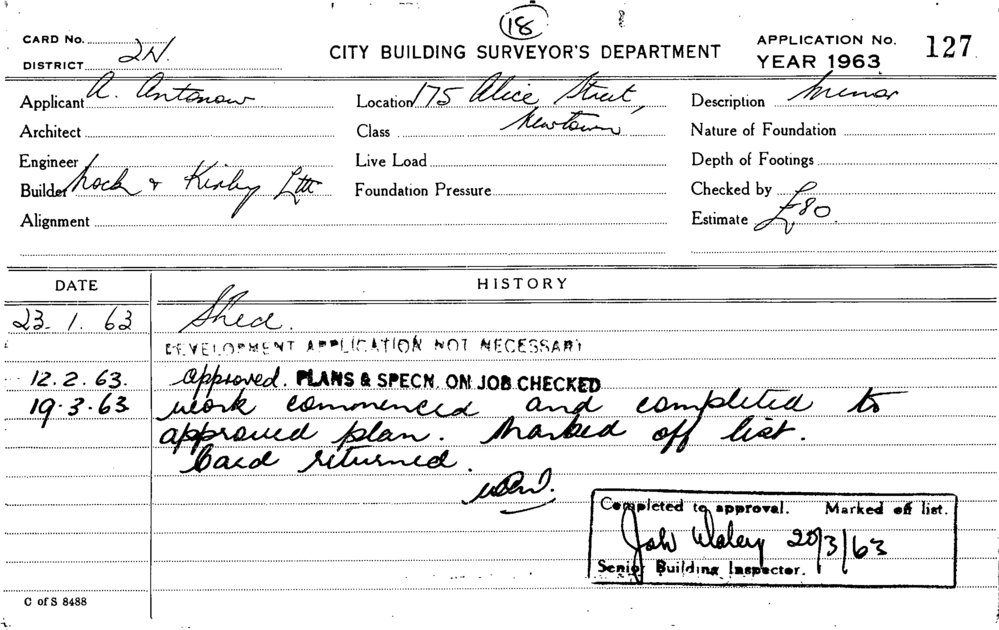 18
CARD No.
DISTRICT 2N.
CITY BUILDING SURVEYOR'S DEPARTMENT
APPLICATION No. 127
YEAR 1963
Applicant A. Antonow
Location 175 Alice Street,
Newtown
Description Minor
Architect
Class
Nature of Foundation
Engineer
Live Load
Depth of Footings
Builder Nock & Kirby Ltd
Foundation Pressure
Checked by
Alignment
Estimate £80
DATE HISTORY
23. 1. 63 Shed.
DEVELOPMENT APPLICATION NOT NECESSARY
12. 2. 63. Approved. PLANS & SPECN. ON JOB CHECKED
19. 3. 63 Work commenced and completed to
approved plan. Marked off list.
Card returned.
Completed to approval. Marked off list.
20/3/63
Senior Building Inspector.
C of S 8488